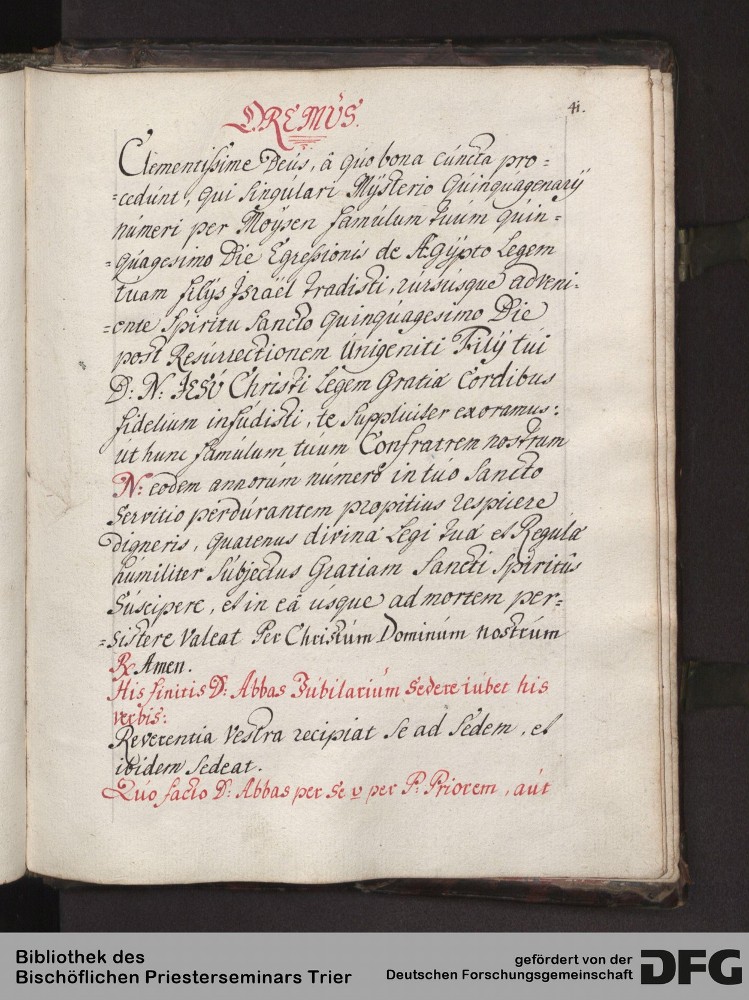 41.
OREMUS.
Clementissime Deus, â quo bona cuncta pro=
=cedunt, qui singulari Mÿsterio Quinquagenarÿ
numeri per Moÿsen famulum tuum quin=
=quagesimo Die Egressionis de Ægÿpto Legem
tuam filÿs Israël tradisti, rursusque adveni=
=ente Spiritu Sancto Quinquagesimo Die
post Resurrectionem Unigeniti Filÿ tui
D: N: JESU Christi Legem Gratiæ Cordibus
fidelium infudisti, te Suppliciter exoramus:
ut hunc famulum tuum Confratrem nostrum
N: eodem annorum numero in tuo Sancto
Servitio perdurantem propitius respicere
digneris, quatenus divinæ Legi tuæ et Regulæ
humiliter Subjectus Gratiam Sancti Spiritûs
Suscipere, et in eâ usque ad mortem per=
=sistere Valeat Per Christum Dominum nostrum
℟ Amen.
His finitis D: Abbas Jubilarium Sedere iubet his
verbis:
Reverentia Vestra recipiat Se ad Sedem, et
ibidem Sedeat.
Quo facto D: Abbas per Se v per P: Priorem, aut
Bibliothek des
Bischöflichen Priesterseminars Trier
gefördert von der
Deutschen Forschungsgemeinschaft
DFG